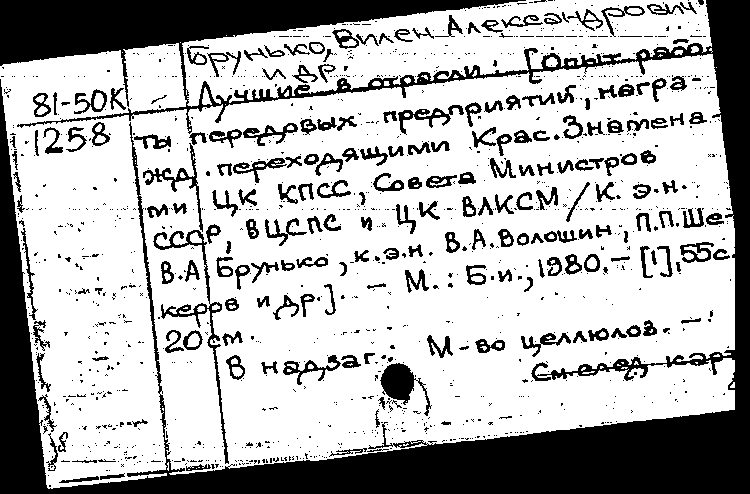 Брунько, Вилен Александрович
и др.
81-50К
1258
Лучшие в отрасли: [Опыт рабо-
ты передовых предприятий, награ-
жд. переходящими Крас. Знамена-
ми ЦК КПСС, Совета Министров
СССР, ВЦСПС и ЦК ВЛКСМ / К. э.н.
В.А. Брунько, к.э.н. В.А. Волошин, П.П. Ше-
керов и др.]. — М. : Б.и., 1980. — [1], 55 с.
20 см.
В надзаг.: М-во целлюлоз. —
См. след. карт